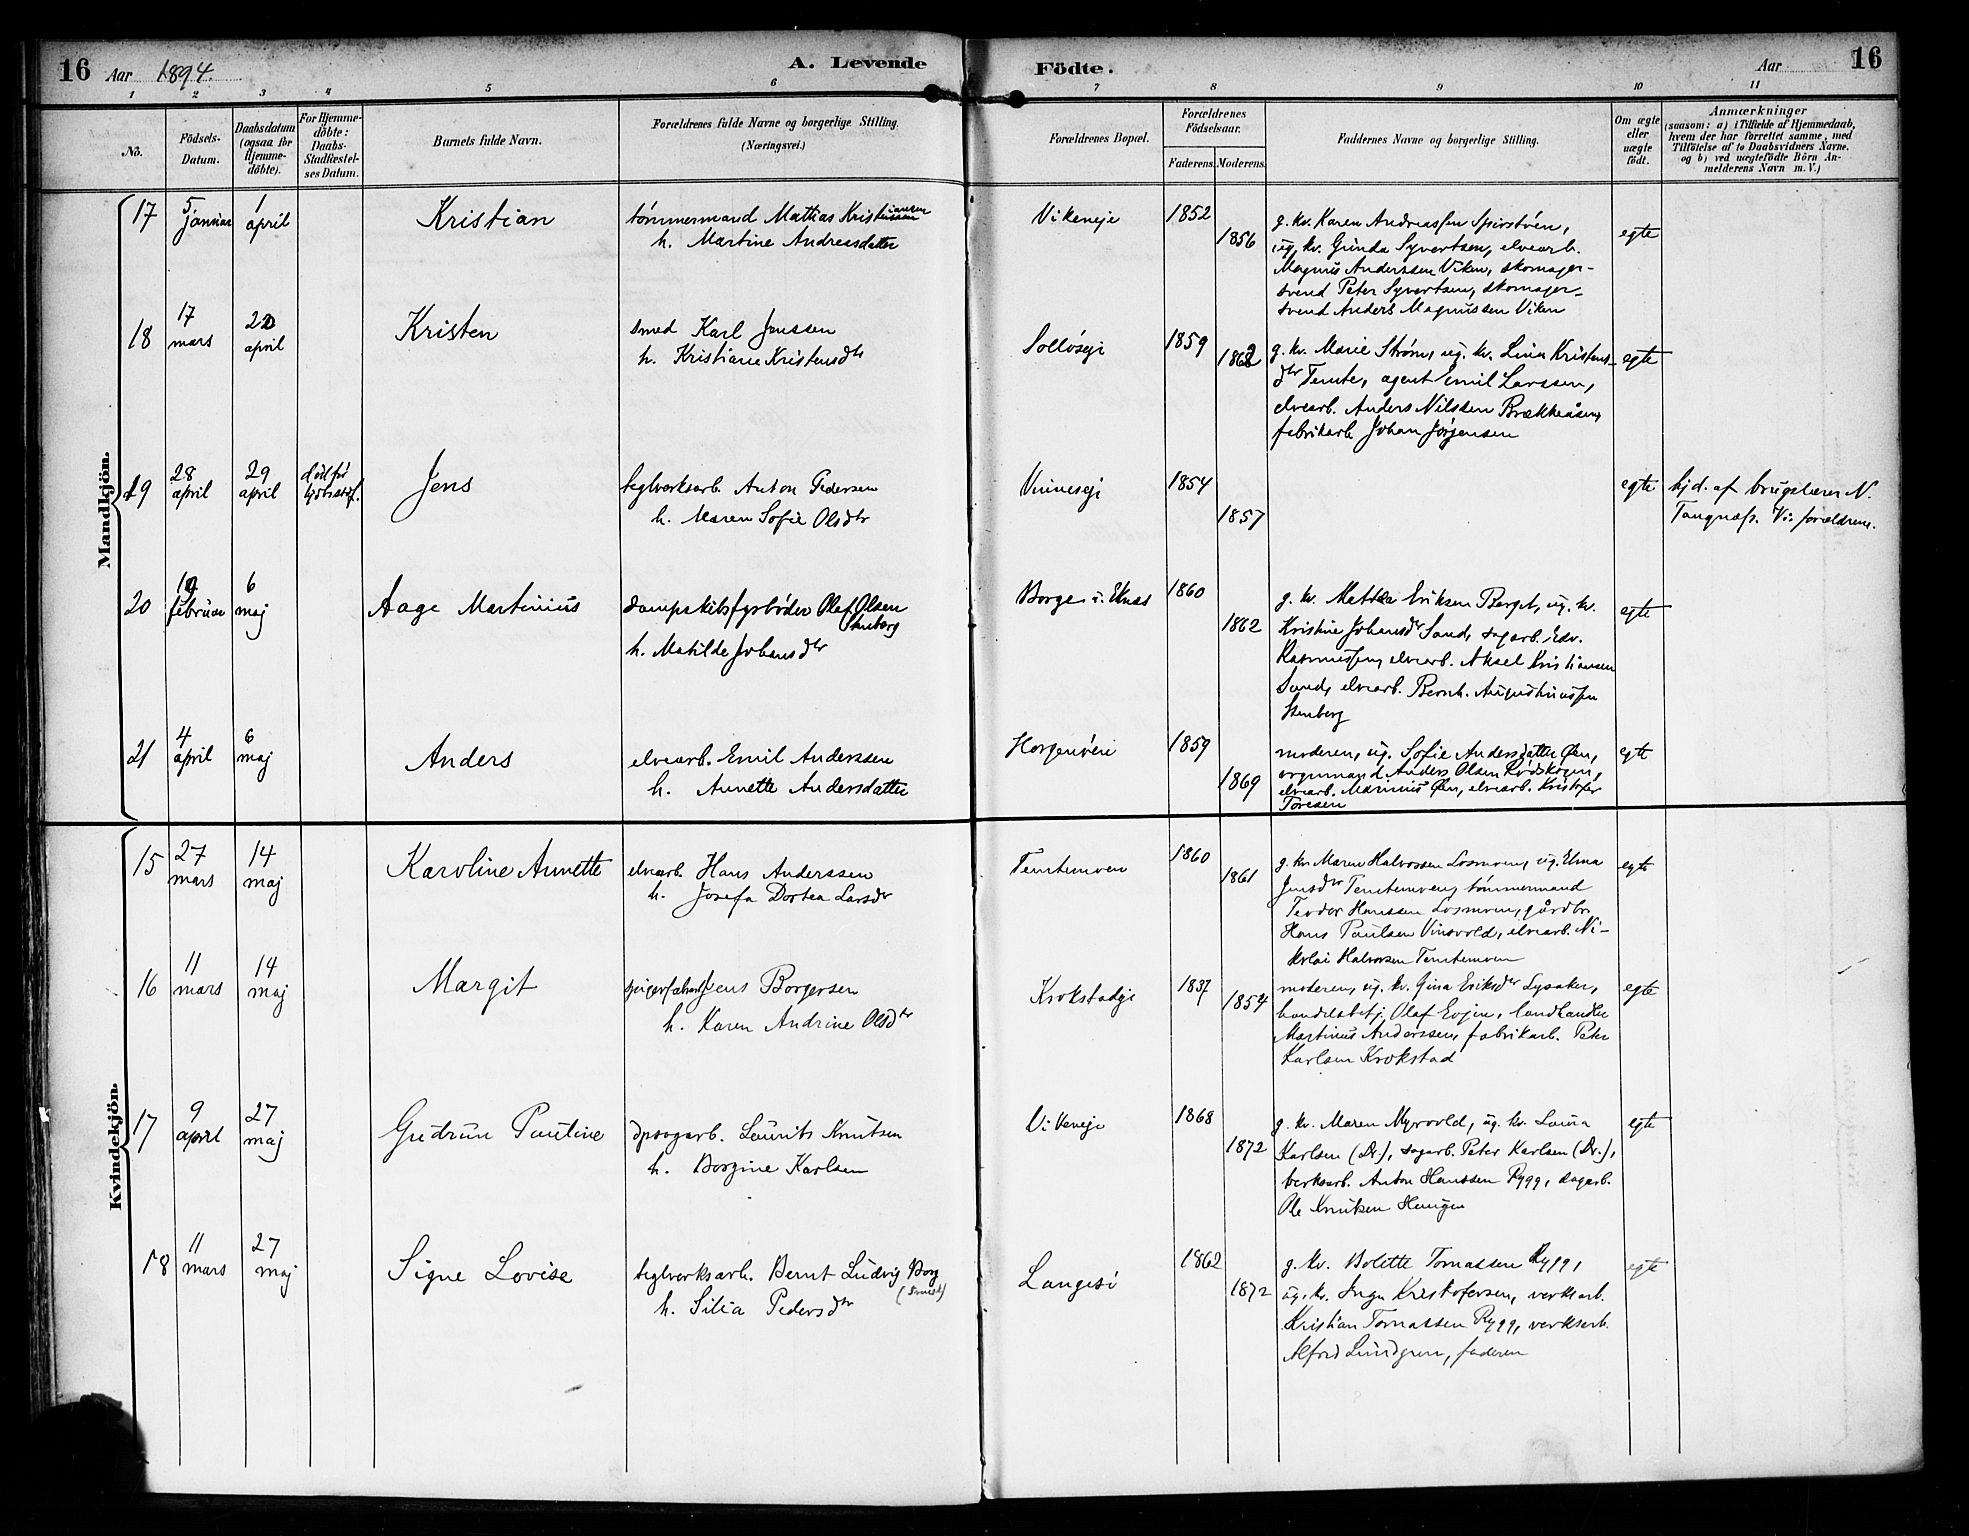 16 Aar 1894. A. Levende Födte. Aar 16
1 2 3 4 5 6 7 8 9 10 11
No.
Födsels-
Datum.
Daabsdatum
(ogsaa for
Hjemme-
döbte).
For Hjemme-
döbte:
Daabs-
Stadfæstel-
ses Datum.
Barnets fulde Navn.
Forældrenes fulde Navne og borgerlige Stilling.
(Næringsvei.)
Forældrenes Bopæl.
Forældrenes
Födselsaar.
Faderens. Moderens.
Faddernes Navne og borgerlige Stilling.
Om ægte
eller
uægte
födt.
Anmærkninger
(saasom: a) i Tilfælde af Hjemmedaab,
hvem der har forrettet samme, med
Tilföielse af to Daabsvidners Navne.
og b) ved uægtefödte Börn An-
melderens Navn m. V.)
Mandkjön.
17
5
januar
1
april
Kristian
tømmermand Mattias
h. Martine Andreasdatter
Vikeneje
1852
1856
g. kv. Karen Andreassen
ug. kv. Gunda Syvertsen, elvearb.
Magnus Anderssen Viken, skomager-
svend Peter Syvertsen, skomager-
svend Anders Magnussen Viken
egte
18
17
mars
22
april
Kristen
smed Karl Jenssen
h. Kristiane Kristensdtr
1859
1862
g. kv. Marie Strøm, ug. kv. Lina Kristens-
dtr Temte, agent Emil Larssen,
elvearb. Anders Nilssen Brækkeåsen,
fabrikarb Johan Jørgensen
egte
19
28
april
29
april
død før
Jens
teglverksarb. Anton Pedersen
h. Maren Sofie Olsdtr
1854
1857
egte
hjd. af brugslærer N.
Tangnæss. Vi: forældrene.
20
februar
6
maj
Aage Martinius
dampskibsfyrbøder Olaf Olsen
Stenberg
h. Matilde Johansdtr
Borge i. Eknes
1860
1862
g. kv. Mathea Eriksen Berget, ug. kv.
Kristine Johansdtr Sand, sagarb. Edv.
Rasmussen, elvearb. Aksel Kristiansen
Sand, elvearb. Bernh. Augustinussen
Stenberg
egte
21
4
april
6
maj
Anders
elvearb. Emil Anderssen
h. Annette Andersdatter
Horgenøen
1859
1869
moderen, ug. Sofie Andersdatter Øen,
vognmand Anders Olsen Rødskogen,
elvearb. Marinius Øen, elvearb. Kristofer
Toresen
egte
Kvindekjön.
15
27
mars
14
maj
Karoline Annette
elvearb. Hans Anderssen
h. Josefa Dortea Larsdtr
Temtemoen
1860
1861
g. kv. Maren Halvorsen Losmoen, ug. Elma
Jensdtr Temtemoen, tømmermand
Teodor Hanssen Losmoen, gårdbr.
Hans Paulsen Vinsvold, elvearb. Ni-
kolai Halvorsen Temtemoen
egte
16
11
mars
14
maj
Margit
Jens Borgersen
h. Karen Andrine Olsdtr
Krokstadeje
1837
1854
moderen, ug. kv. Gina Eriksdtr Lysaker,
handelsbetj. Olaf Evjen, landhandler
Martinius Anderssen, fabrikarb. Peter
Karlsen Krokstad
egte
17
9
april
27
maj
Gudrun Pauline
dpsagarb. Laurits Knutsen
h. Borgine Karlsen
Vikeneje
1868
1872
g. kv. Maren Myrvold, ug. kv. Laura
Karlsen (Dr.), sagarb. Peter Karlsen (Dr.),
verksarb. Anton Hanssen Rygg, sagarb.
Ole Knutsen Haugen
egte
18
11
mars
27
maj
Signe Lovise
teglverksarb. Bernt Ludvig Borg
h. Silia Pedersdtr
Langesø
1862
1872
g. kv. Bolette Tomassen Rygg,
ug. kv. Inga Kristofersen, verksarb.
Kristian Tomassen Rygg, verksarb.
Alfred Lundgren, faderen
egte